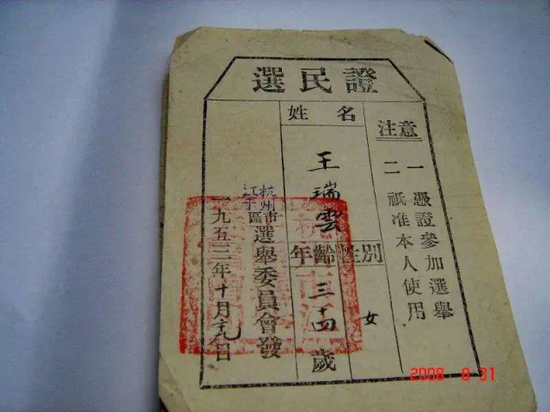 選民證
注意
一 憑證參加選舉
二 祇准本人使用
姓名
王瑞雲
性別
女
年齡
三十四歲
杭州市
江干區
選舉委員會發
一九五三年十月 日
2008 8 31